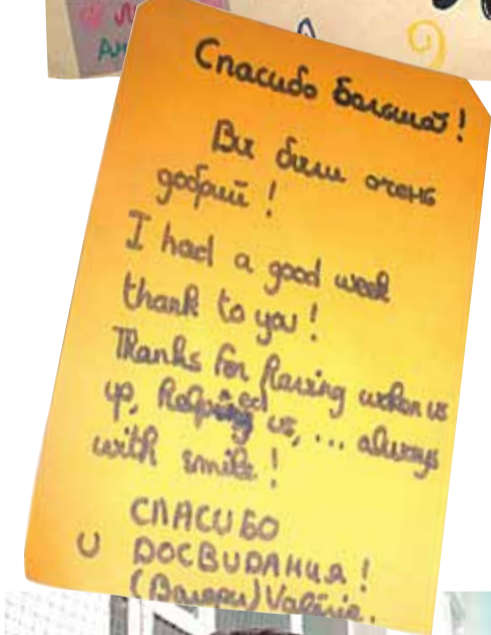 Спасибо Балшой!
Ви били очень
добрий!
I had a good week
thank to you!
Thanks for having woken us
up, helped us, ... always
with smile!
СПАСИБО
U ДОСВИДАНИЯ!
(Валери) Valérie.